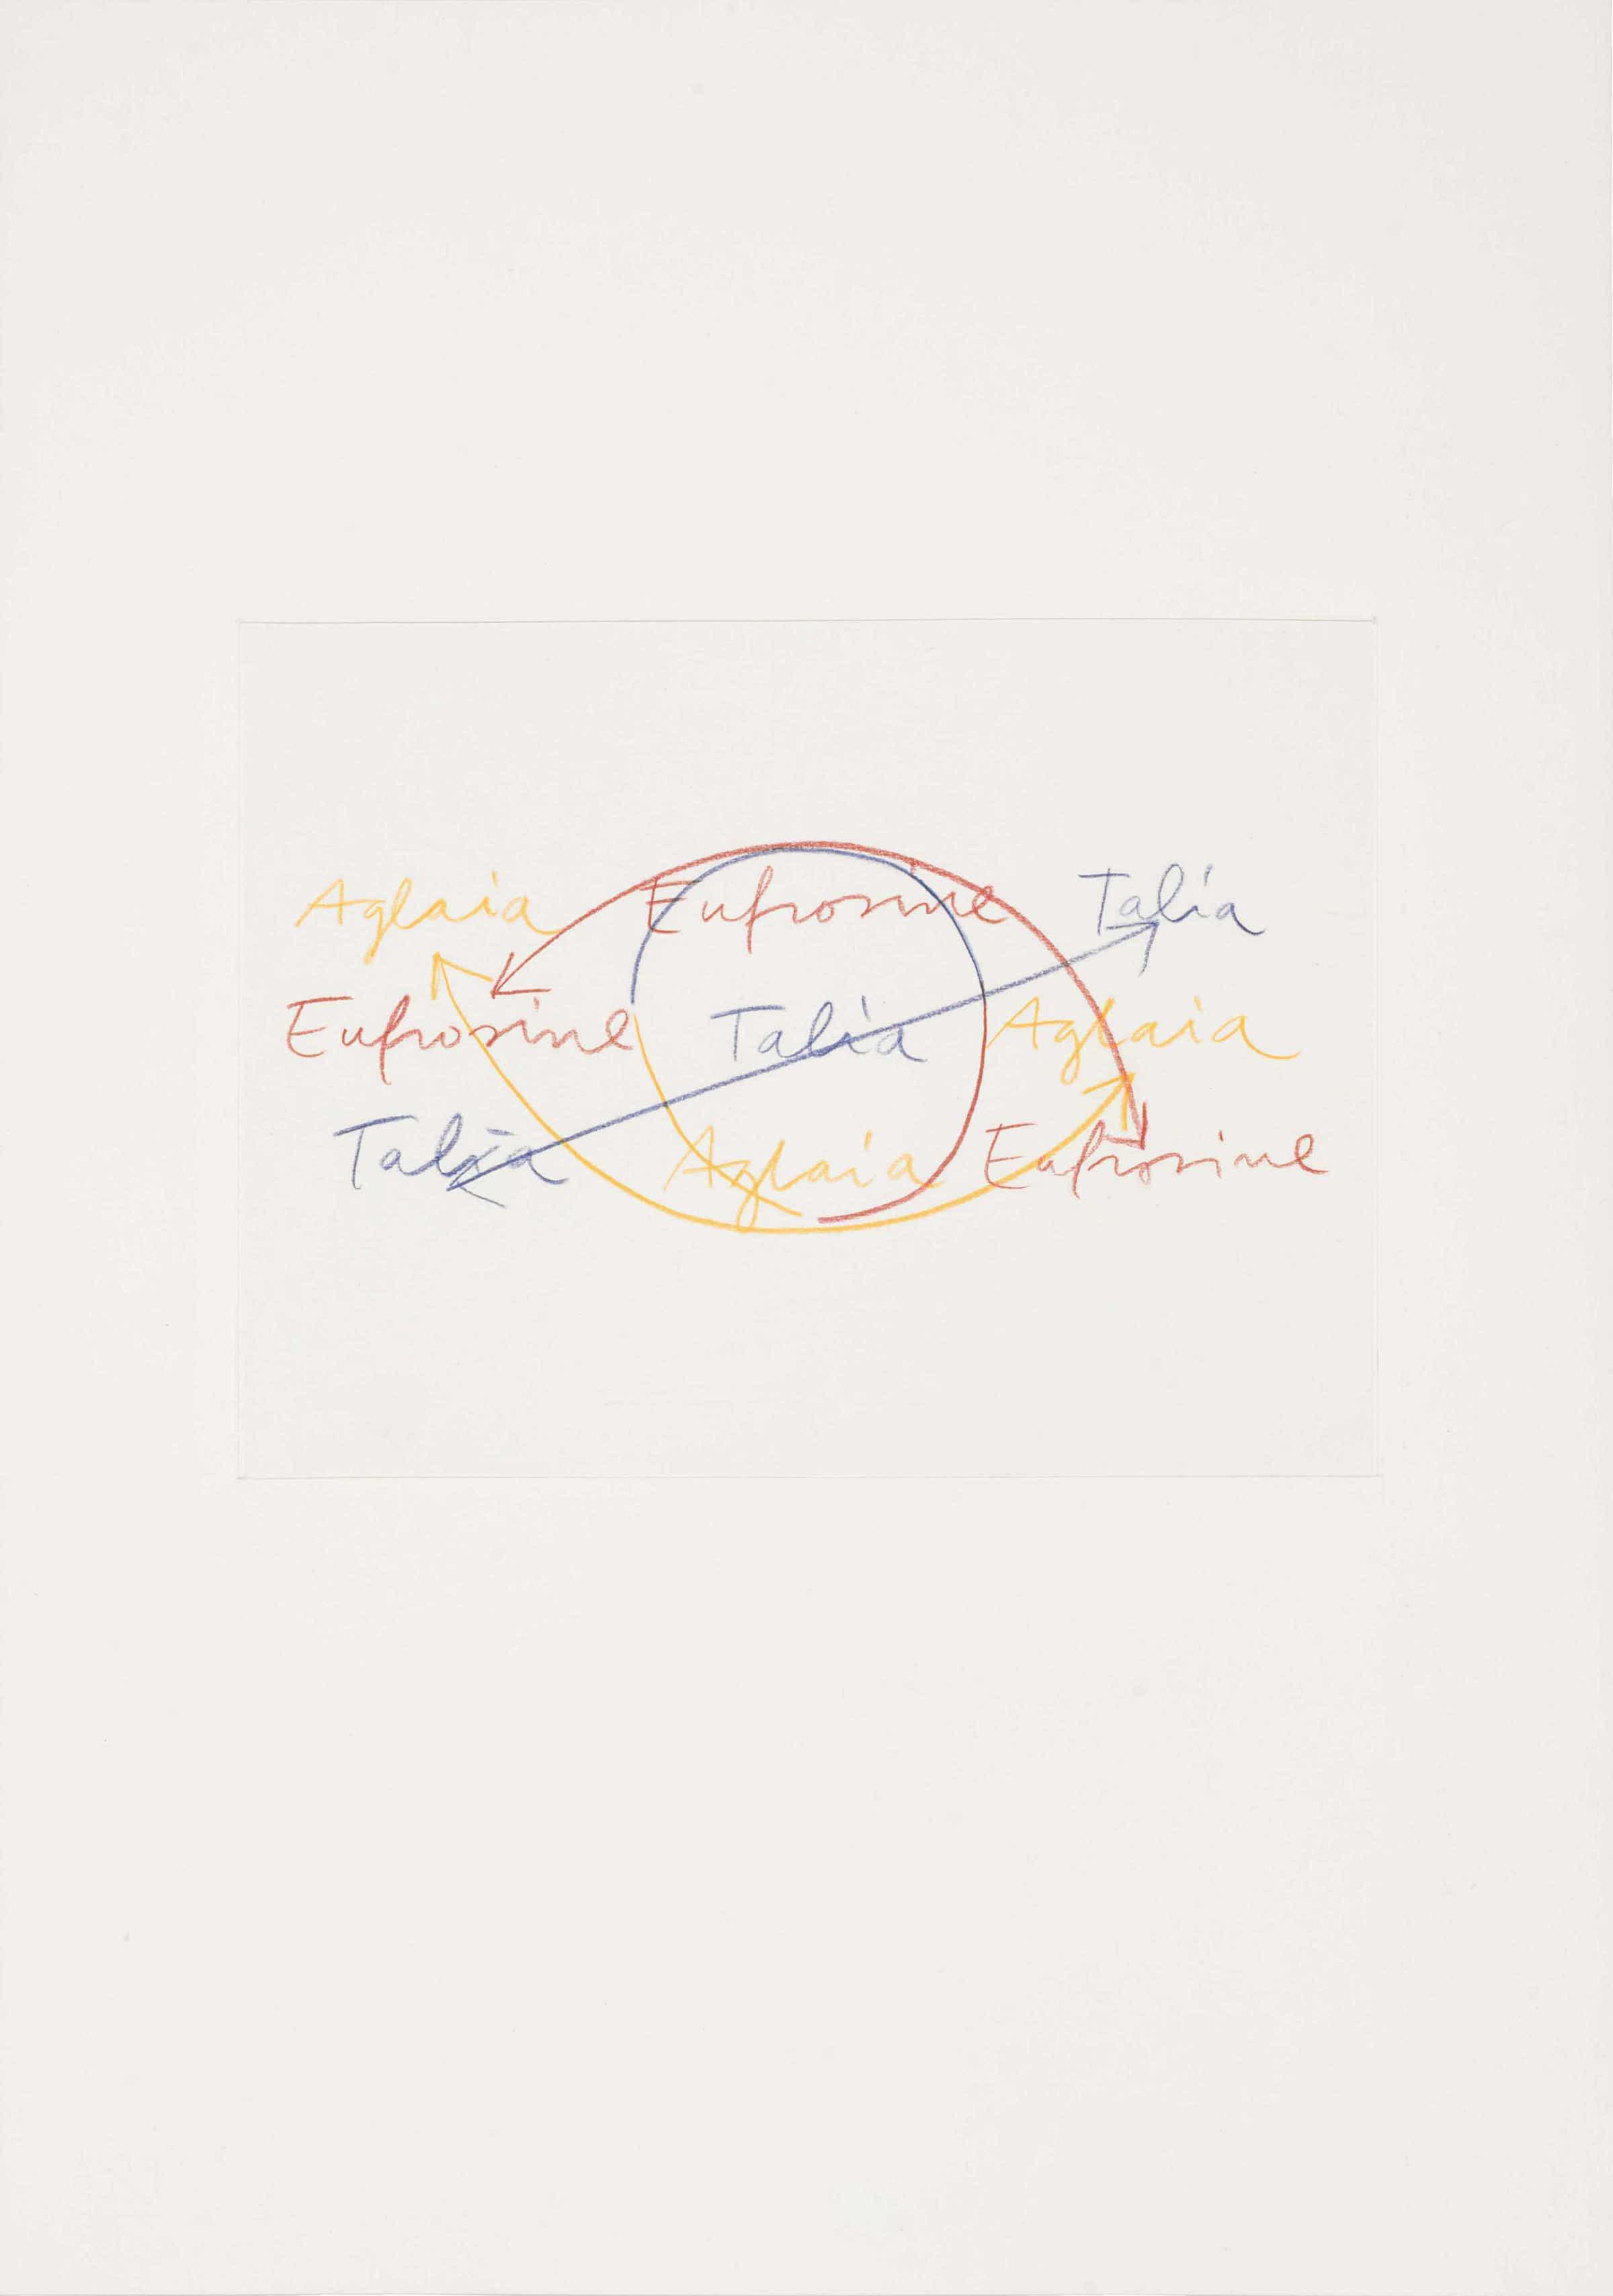 Aglaia Eufrosine Talia
Eufrosine Talia Aglaia
Talia Aglaia Eufrosine